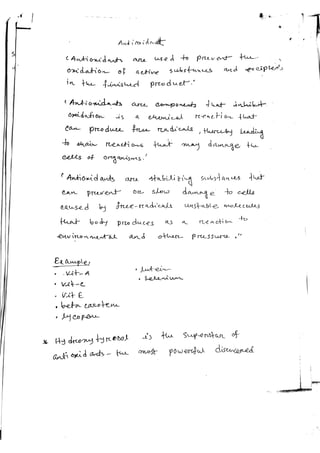 Antioxidant
" Antioxidants are used to prevent the
oxidation of active substances and excipients
in the finished product "
" Antioxidants are components that inhibit
oxidation is a chemical reaction that
can produce free radicals, thereby leading
to chain reactions that may damage the
cells of organisms. "
" Antioxidants are stabilizing substances that
can prevent or slow damage to cells
caused by free-radicals unstable molecules
that body produces as a reaction to
environmental and other pressure. "
Examples
• Vit-A
• Vit-C
• Vit E
• beta carotene
• lycopene
• lutein
• Selenium
* Hydroxytyrosol is the Superstar of
antioxidants - the most powerful discovered